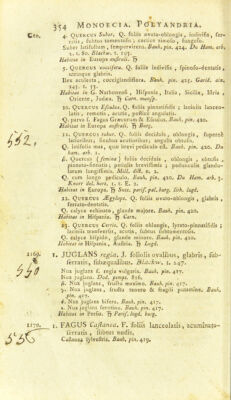 354 MONOECIA. POLYANDRIA.
Cto. 4. QUERCUS Suber, Q. foliis ovato-oblongis, indivisis, ser-
ratis, subtus tomentosis, cortice rimoso, fungoso.
Suber latifolium, sempervirens. Bauh. pin. 424. Du Ham. arb.
Habitat in Europa australi. ♄
5. QUERCUS coccifera. Q. foliis indivisis, spinoso-dentatis,
utrinque glabris.
Ilex aculeata, cocciglandifera. Bauh. pin. 425. Garid. aix.
245. t. 53.
Habitat in G. Narbonensi, Hispania, Italia, Sicilia, Istria,
Oriente, Judæa. ♄
20. QUERCUS Esculus. Q. foliis pinnatifidis; laciniis lanceo-
latis, remotis, acutis, postice angulatis.
Q. parva f. Fagus Græcorum & Esculus Plinii. Bauh. pin. 420.
Habitat in Europa australi. ♄
552. 21. QUERCUS Robur. Q. foliis deciduis, oblongis, superne
latioribus; sinubus acutioribus; angulis obtusis.
Q. latifolia mas, quæ brevi pediculo est. Bauh. pin. 420. Du
Ham. arb. 1.
β. Quercus (femina) foliis deciduis, oblongis, obtusis,
pinnato-sinuatis; petiolis brevissimis; pedunculis glandu-
larum longissimis. Mill. dict. n. 2.
Q. cum longo pediculo. Bauh. pin. 420. Du Ham. arb. 3.
Knorr del. hort. 1. t. E. 2.
Habitat in Europa. ♄
22. QUERCUS Ægylops. Q. foliis ovato-oblongis, glabris,
serrato-dentatis.
Q. calyce echinato, glande majore. Bauh. pin. 420.
Habitat in Hispania. ♄
23. QUERCUS Cerris, Q. foliis oblongis, lyrato-pinnatifidis;
laciniis transversis, acutis, subtus subtomentosis.
Q. calyce hispido, glande minore. Bauh. pin. 420.
Habitat in Hispania, Austria. ♄
1169. 1. JUGLANS regia. J. foliolis ovalibus, glabris, sub-
550 serratis, subæqualibus. Blackw. t. 247.
Nux juglans f. regia vulgaris. Bauh. pin. 417.
Nux juglans. Dod. pempt. 816.
β. Nux juglans, fructu maximo. Bauh. pin. 417.
γ. Nux juglans, fructu tenero & fragili putamine. Bauh.
pin. 417.
δ. Nux juglans bifera. Bauh. pin. 417.
ε. Nux juglans serotino. Bauh. pin. 417.
Habitat in Persia. ♄
1170. 1. FAGUS Castanea. F. foliis lanceolatis, acuminato-
556 serratis, subtus nudis.
Castanea sylvestris. Bauh. pin. 419.